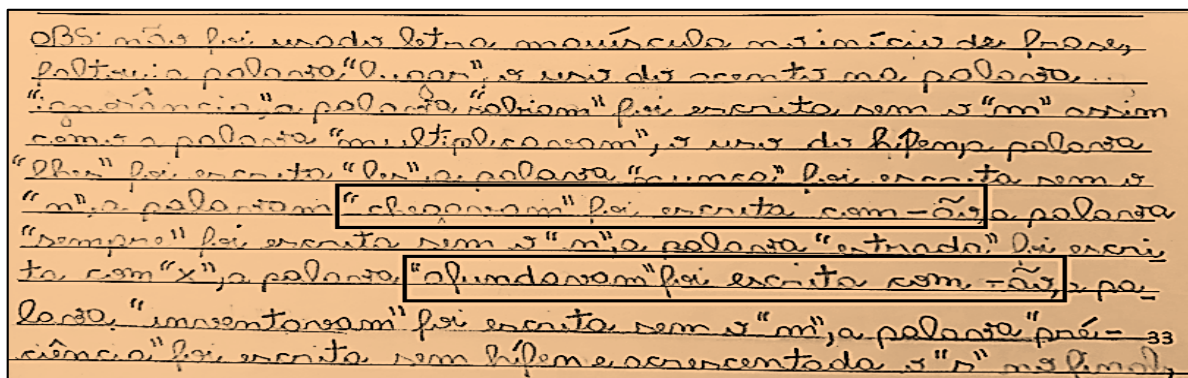 OBS: não foi usado letra maiúscula no início de frase,
faltou a palavra "lugar", o uso do acento na palavra...
"ignorância", a palavra "sabiam" foi escrita sem o "m" assim
como a palavra "multiplicavam", o uso do hífen, a palavra
"lhes" foi escrita "les", a palavra "nunca" foi escrita sem o
"n", a palavram "chegaram" foi escrita com -ão, a palavra
"sempre" foi escrita sem o "m", a palavra "entrada" foi escri
ta com "x", a palavra "afundavam" foi escrita com -ão, a pa-
lavra "inventavam" foi escrita sem o "m", a palavra "pré-
ciência" foi escrita sem hífen e acrescentada o "s" no final,
33